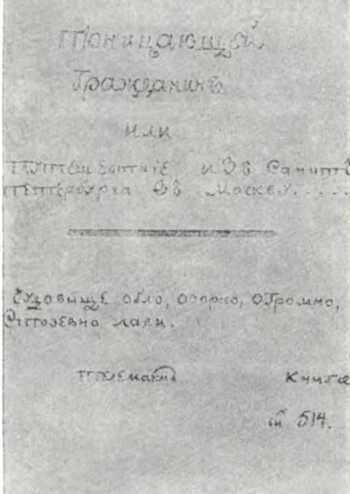 Проницающей
Гражданинъ
или
Путешествіе изъ Санкт
петербурга въ Москву....
Чудовище обло, озорно, огромно,
лаяи.
Телемахид Книга
514.